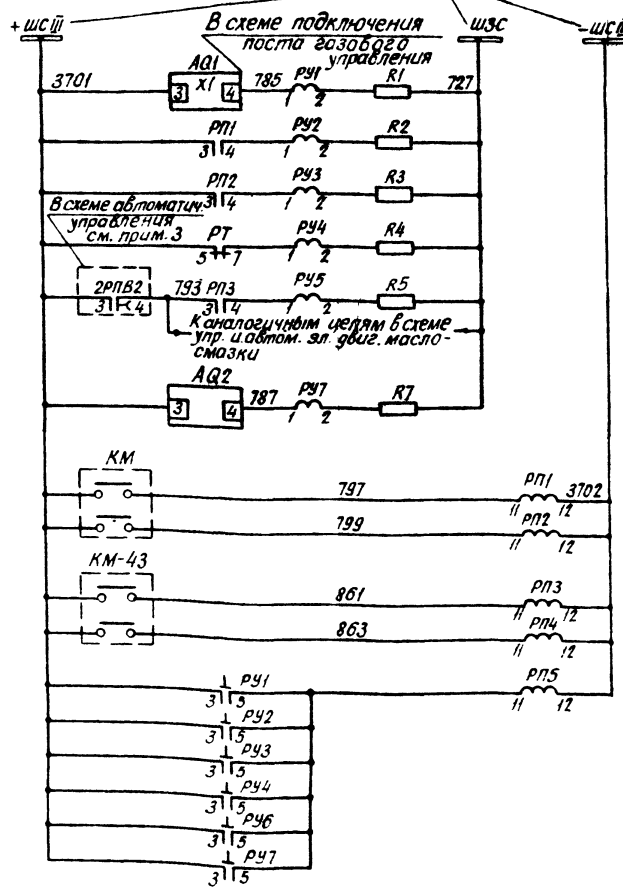 +ШС III
В схеме подключения
поста газового
управления
ШЗС
-ШС III
3701
AQ1
X1
3
4
785
РУ1
1 2
R1
727
РП1
3 4
РУ2
1 2
R2
РП2
3 4
РУ3
1 2
R3
В схеме автоматич.
управления
см. прим. 3
РТ
5 7
РУ4
1 2
R4
2РПВ2
3 4
793
РП3
3 4
РУ5
1 2
R5
К аналогичным цепям в схеме
упр. и автом. эл. двиг. масло-
смазки
AQ2
3
4
787
РУ7
1 2
R7
КМ
797
РП1
11 12
3702
799
РП2
11 12
КМ-43
861
РП3
11 12
863
РП4
11 12
РУ1
3 5
РП5
11 12
РУ2
3 5
РУ3
3 5
РУ4
3 5
РУ6
3 5
РУ7
3 5